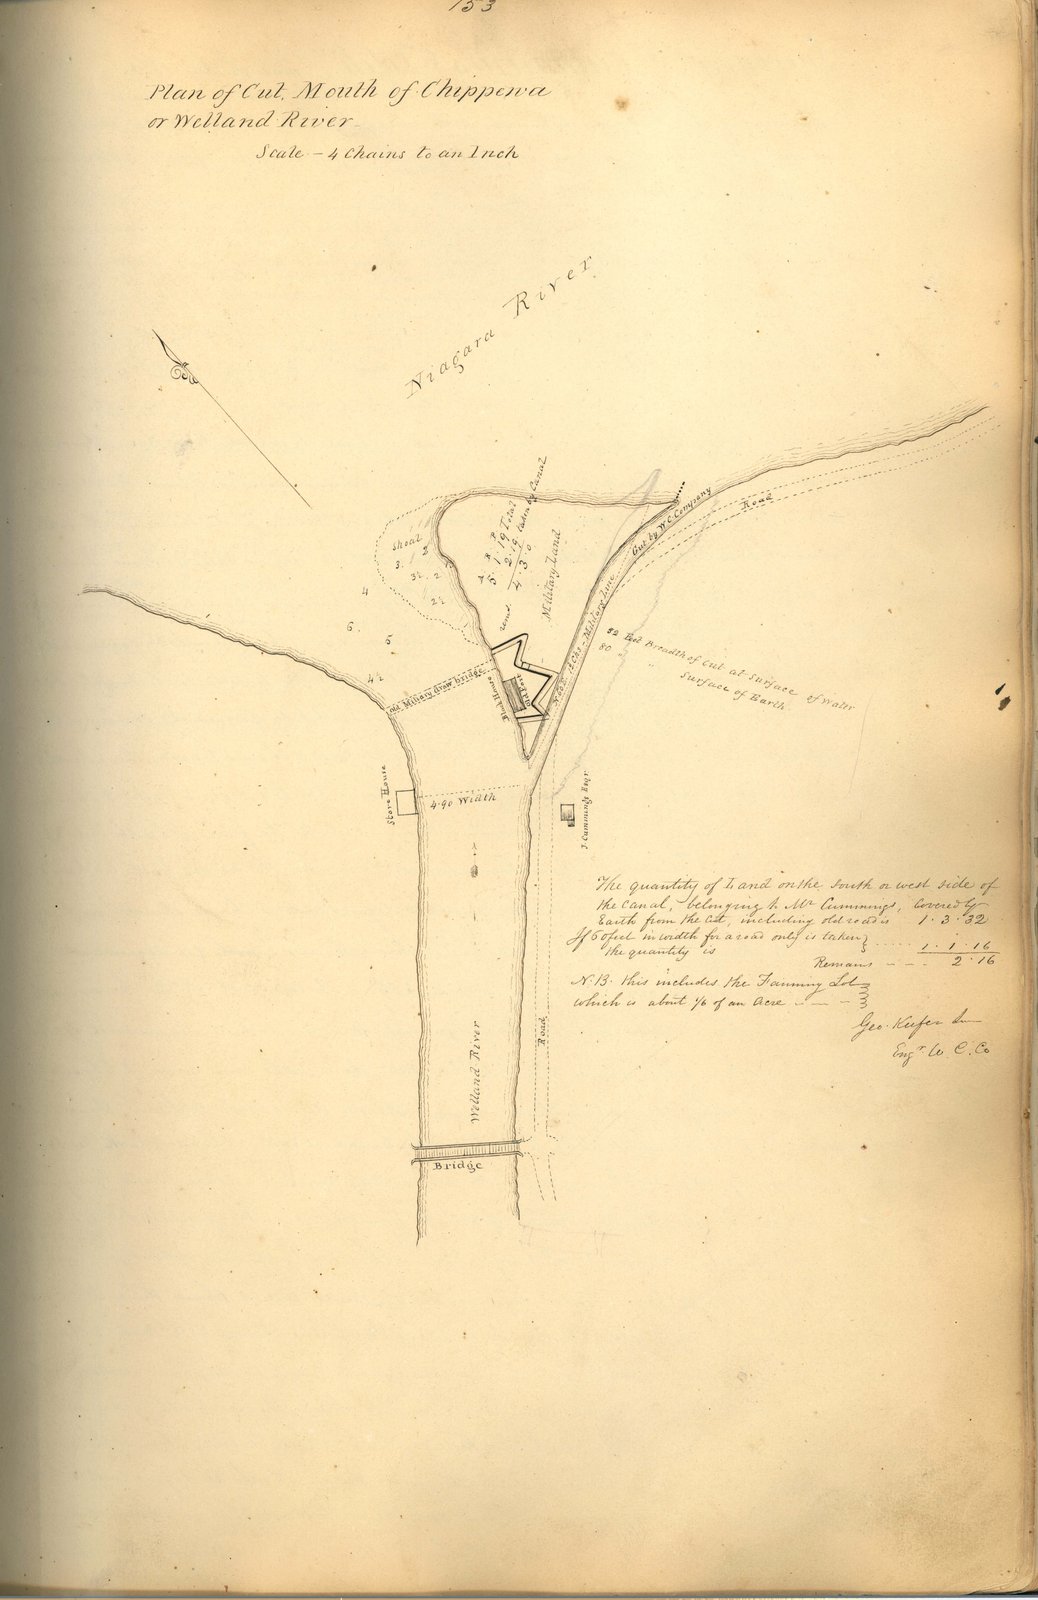 153
Plan of Cut, Mouth of Chippewa
or Welland River
Scale - 4 Chains to an Inch
Niagara River
Shoal
3.
2
3½
2
2½
4
6
5
4½
A. R. P.
5. 1. 19 Total
2. 19 taken by Canal
4. 3. 0
rems.
Military Land
Cut by W. C. Company
Road
Military Line
52 Feet Breadth of Cut at Surface of Water
80 " " Surface of Earth
Old Military draw bridge
Block House
Old Fort
Store House
4.90 Width
J. Cummings Esqr
The quantity of Land on the South or west side of
the Canal, belonging to Mr Cummings, covered by
Earth from the Cut, including old road is 1. 3. 32
If 60 feet in width for a road only is taken
the quantity is 1. 1. 16
Remains 2. 16
N.B. this includes the Fanning Lot
which is about 1/6 of an Acre
Geo. Keefer Jr
Engr W. C. Co
Welland River
Road
Bridge